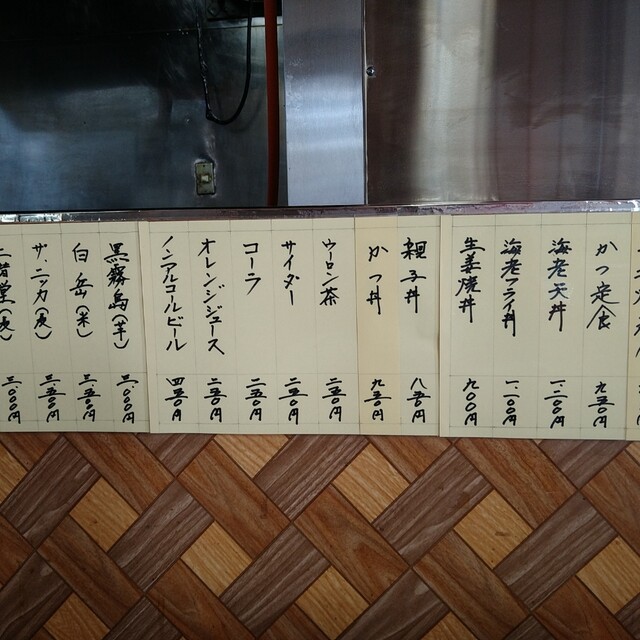 かつ定食 九五〇円
海老天丼 一二〇〇円
海老フライ丼 一一〇〇円
生姜焼丼 九〇〇円
親子丼 八五〇円
かつ丼 九五〇円
ウーロン茶 二五〇円
サイダー 二五〇円
コーラ 二五〇円
オレンジジュース 二五〇円
ノンアルコールビール 四五〇円
黒霧島(芋) 三、〇〇〇円
白岳(米) 三五〇〇円
ザ・ニッカ(麦) 三五〇〇円
二階堂(麦) 三、〇〇〇円